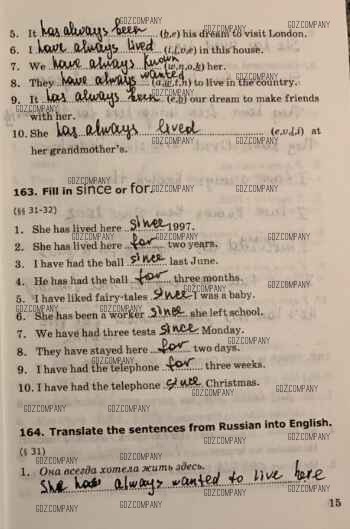 5. It has always been (b,e) his dream to visit London.
6. I have always lived (i,l,v,e) in this house.
7. We have always known (w,n,o,k) her.
8. They have always wanted (a,w,t,n) to live in the country.
9. It has always been (e,b) our dream to make friends
with her.
10. She has always lived (e,v,l,i) at
her grandmother's.
GDZ.COMPANY
163. Fill in since or for.
(§§ 31-32)
1. She has lived here since 1997.
2. She has lived here for two years.
3. I have had the ball since last June.
4. He has had the ball for three months.
5. I have liked fairy-tales since I was a baby.
6. She has been a worker since she left school.
7. We have had three tests since Monday.
8. They have stayed here for two days.
9. I have had the telephone for three weeks.
10. I have had the telephone since Christmas.
164. Translate the sentences from Russian into English.
(§ 31)
1. Она всегда хотела жить здесь.
She has always wanted to live here
15